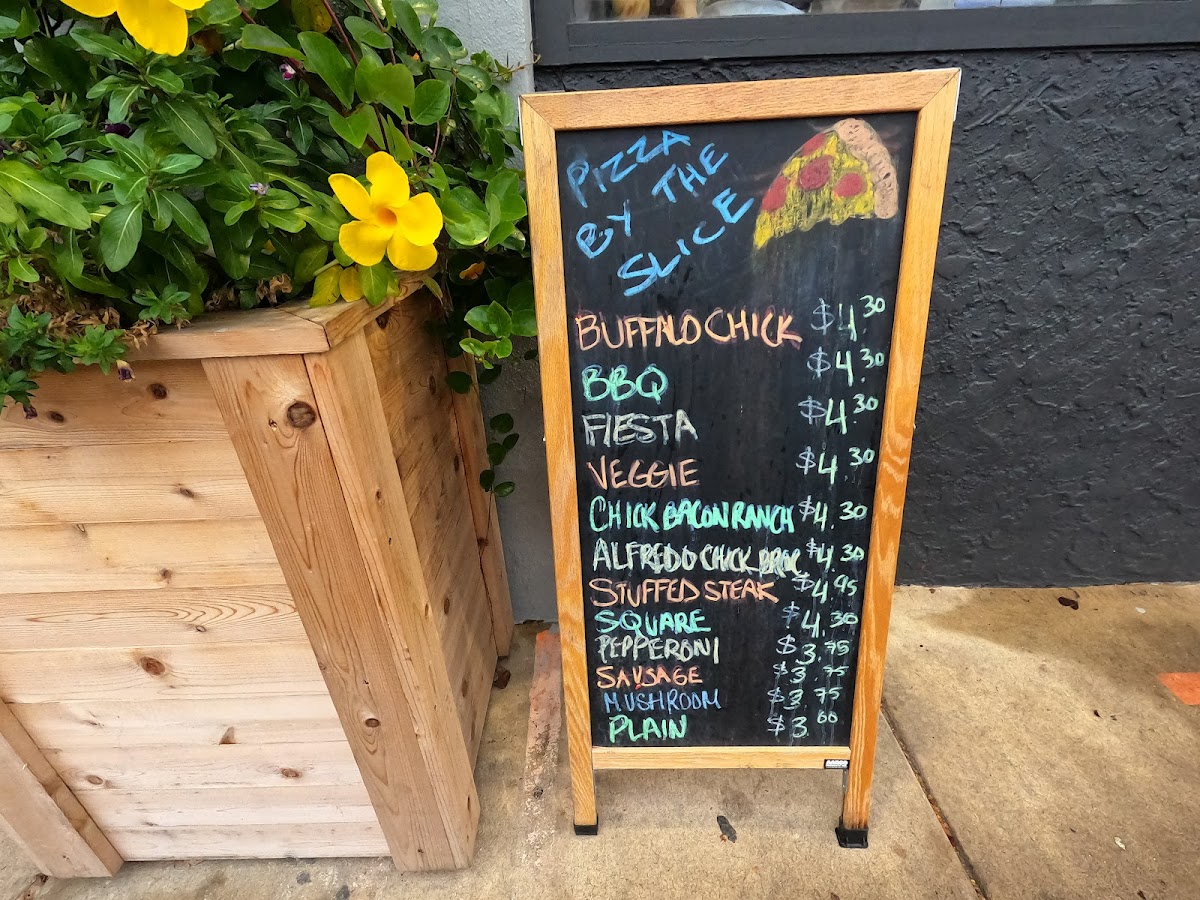 PIZZA
BY THE
SLICE
BUFFALO CHICK $4.30
BBQ $4.30
FIESTA $4.30
VEGGIE $4.30
CHICK BACON RANCH $4.30
ALFREDO CHICK BROC $4.30
STUFFED STEAK $4.95
SQUARE $4.30
PEPPERONI $3.75
SAUSAGE $3.75
MUSHROOM $3.75
PLAIN $3.00